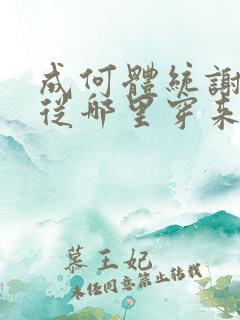 成何體統謝
從哪里穿来
慕王妃
未经同意禁止转载